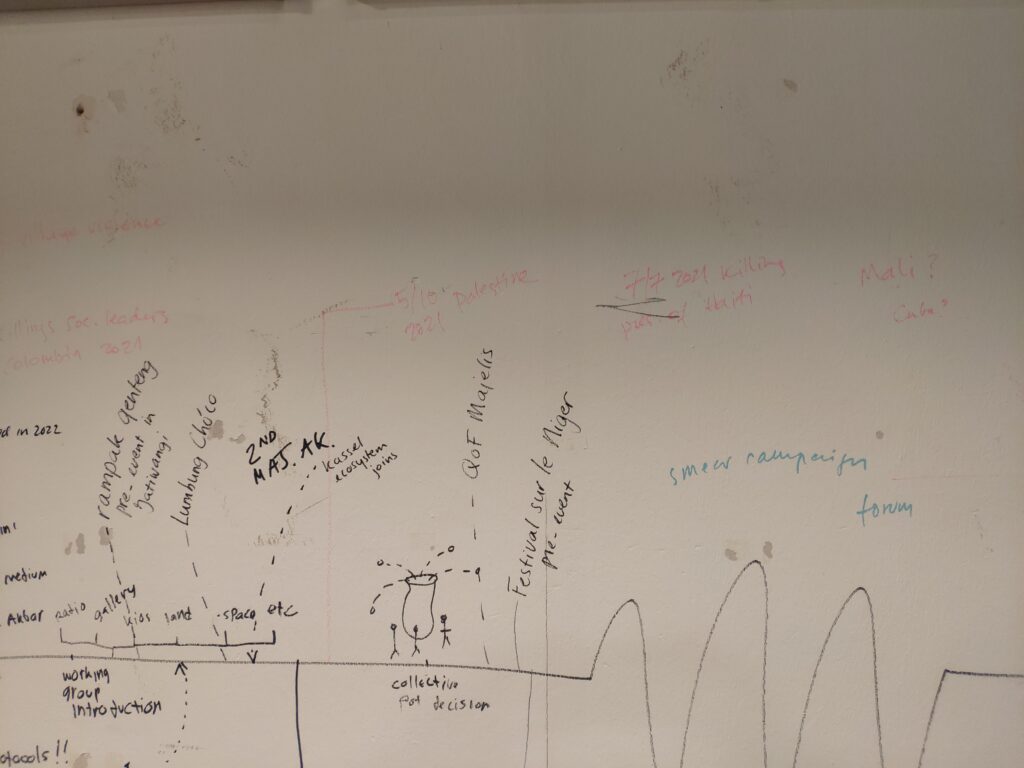 village violence
5/10 Palestine
2021
7/7 2021 Killing
pres of Haiti
Mali?
Cuba?
llings soc. leaders
Colombia 2021
in 2022
rampak genteng
pre-event in
Jatiwangi
Lumbung Chóco
2ND
MAJ. AK.
Kassel
ecosystem
joins
QOF Majelis
Festival sur le Niger
pre-event
smear campaign
forum
medium
Akbar
gallery
kids
land
space
etc
working
group
Introduction
collective
Pot decision
otocols!!